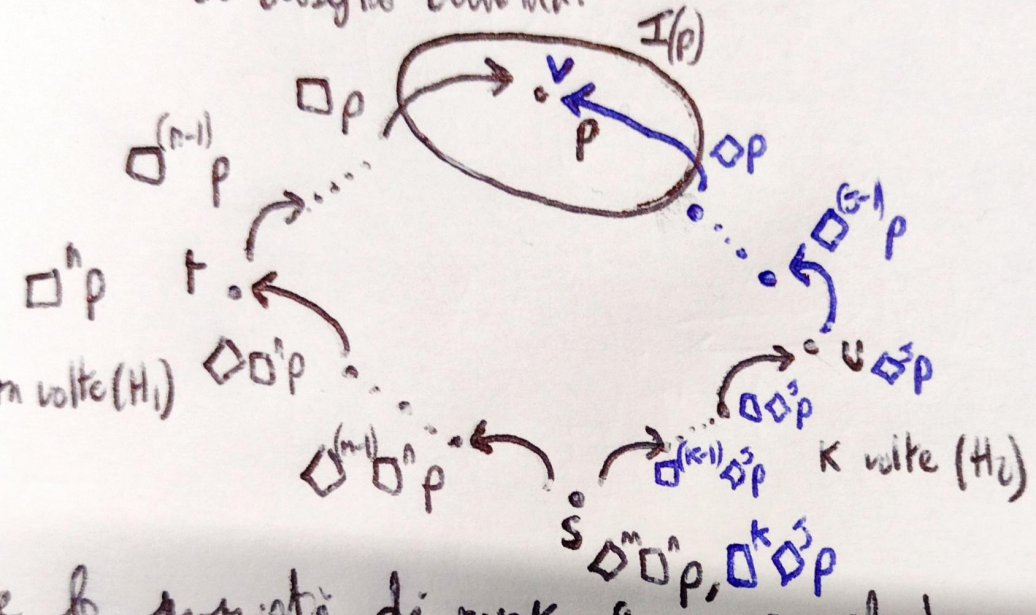 I(p)
□p
V
p
◇p
□⁽ⁿ⁻¹⁾p
□⁽ʲ⁻¹⁾p
□ⁿp
t
u ◇ʲp
◇□ⁿp
□◇ʲp
volte (H₁)
◇⁽ᵐ⁻¹⁾□ⁿp
□⁽ᵏ⁻¹⁾◇ʲp
K volte (H₂)
S
◇ᵐ□ⁿp, □ᵏ◇ʲp